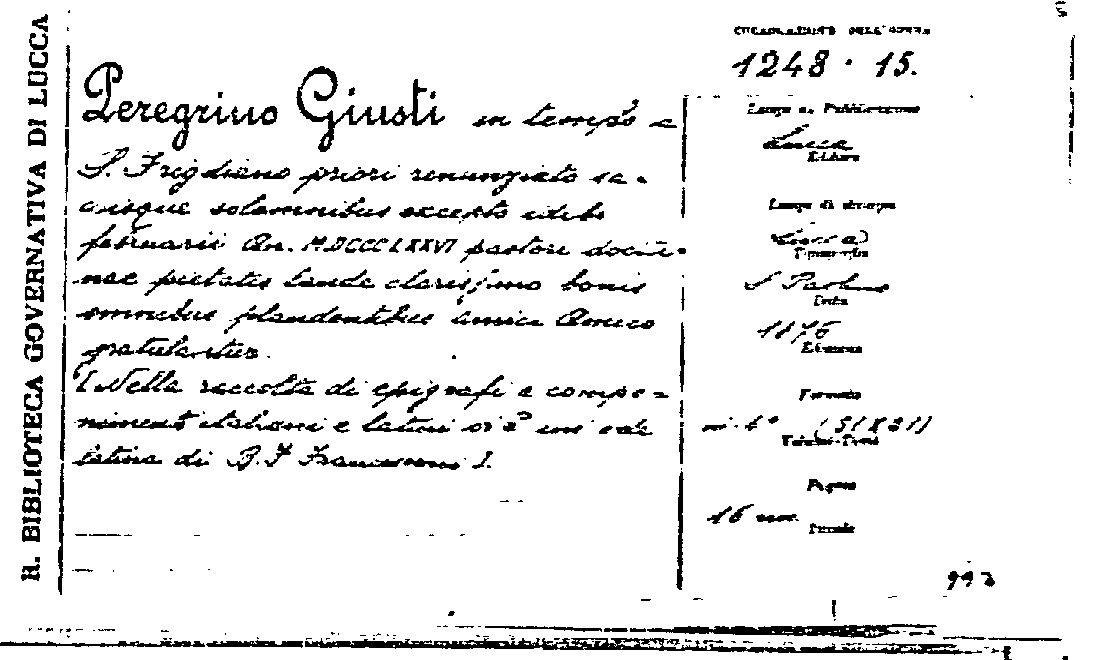 R. BIBLIOTECA GOVERNATIVA DI LUCCA
COLLOCAZIONE DELL'OPERA
1248 · 15.
Peregrino Giusti in templo a
S. Frigdiano priori renunziato sa-
crisque solemnibus excepto idibs
februarii An. MDCCCLXXVI pastori doctri-
nae pietatis laude clarissimo bonis
omnibus plaudentibus amici Amico
gratulantur.
[Nella raccolta di epigrafi e compo=
nimenti italiani e latini vi è una ode
latina di B. F. Francesconi].
Luogo di Pubblicazione
Lucca
Editore
Luogo di stampa
Lucca
Tipografia
S Paolino
Data
1876
Edizione
Formato
in 4° (31X21)
Volumi-Tomi
Pagine
16 nn.
993